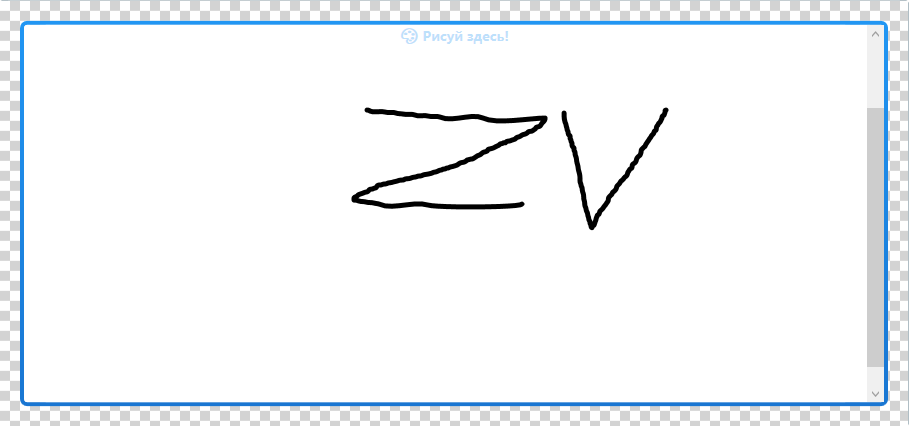 Рисуй здесь!
ZV